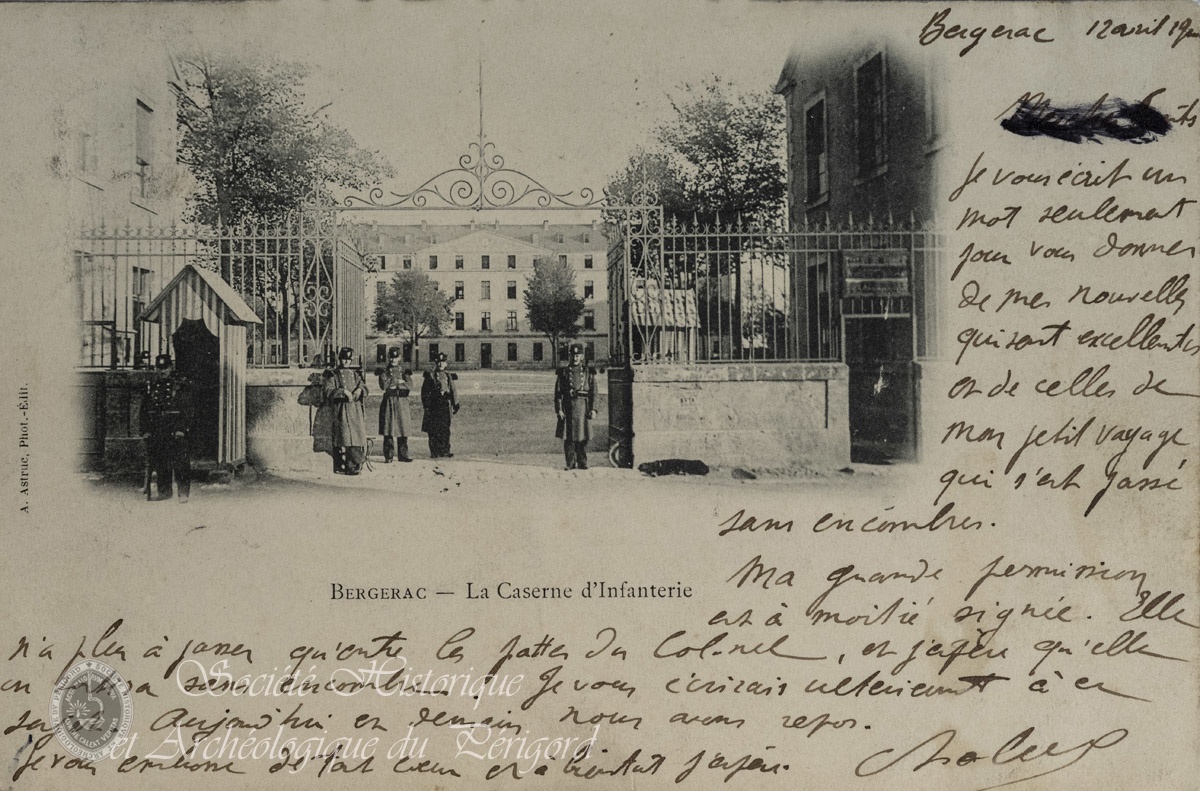 Bergerac 12 avril 19
Je vous écrit un
mot seulement
pour vous donner
de mes nouvelles
qui sont excellentes
et de celles de
mon petit voyage
qui s'est passé
sans encombres.
Ma grande permission
est à moitié signée. Elle
n'a plus à passer qu'entre les pattes du Colonel, et j'espère qu'elle
en sans encombres. Je vous écrirais ulterieurement à ce
sujet. Aujourd'hui et demain nous avons repos.
Je vous embrasse de tout coeur et à bientôt j'espère.
BERGERAC — La Caserne d'Infanterie
A. Astruc, Phot.-Édit.
Société Historique
et Archéologique du Périgord